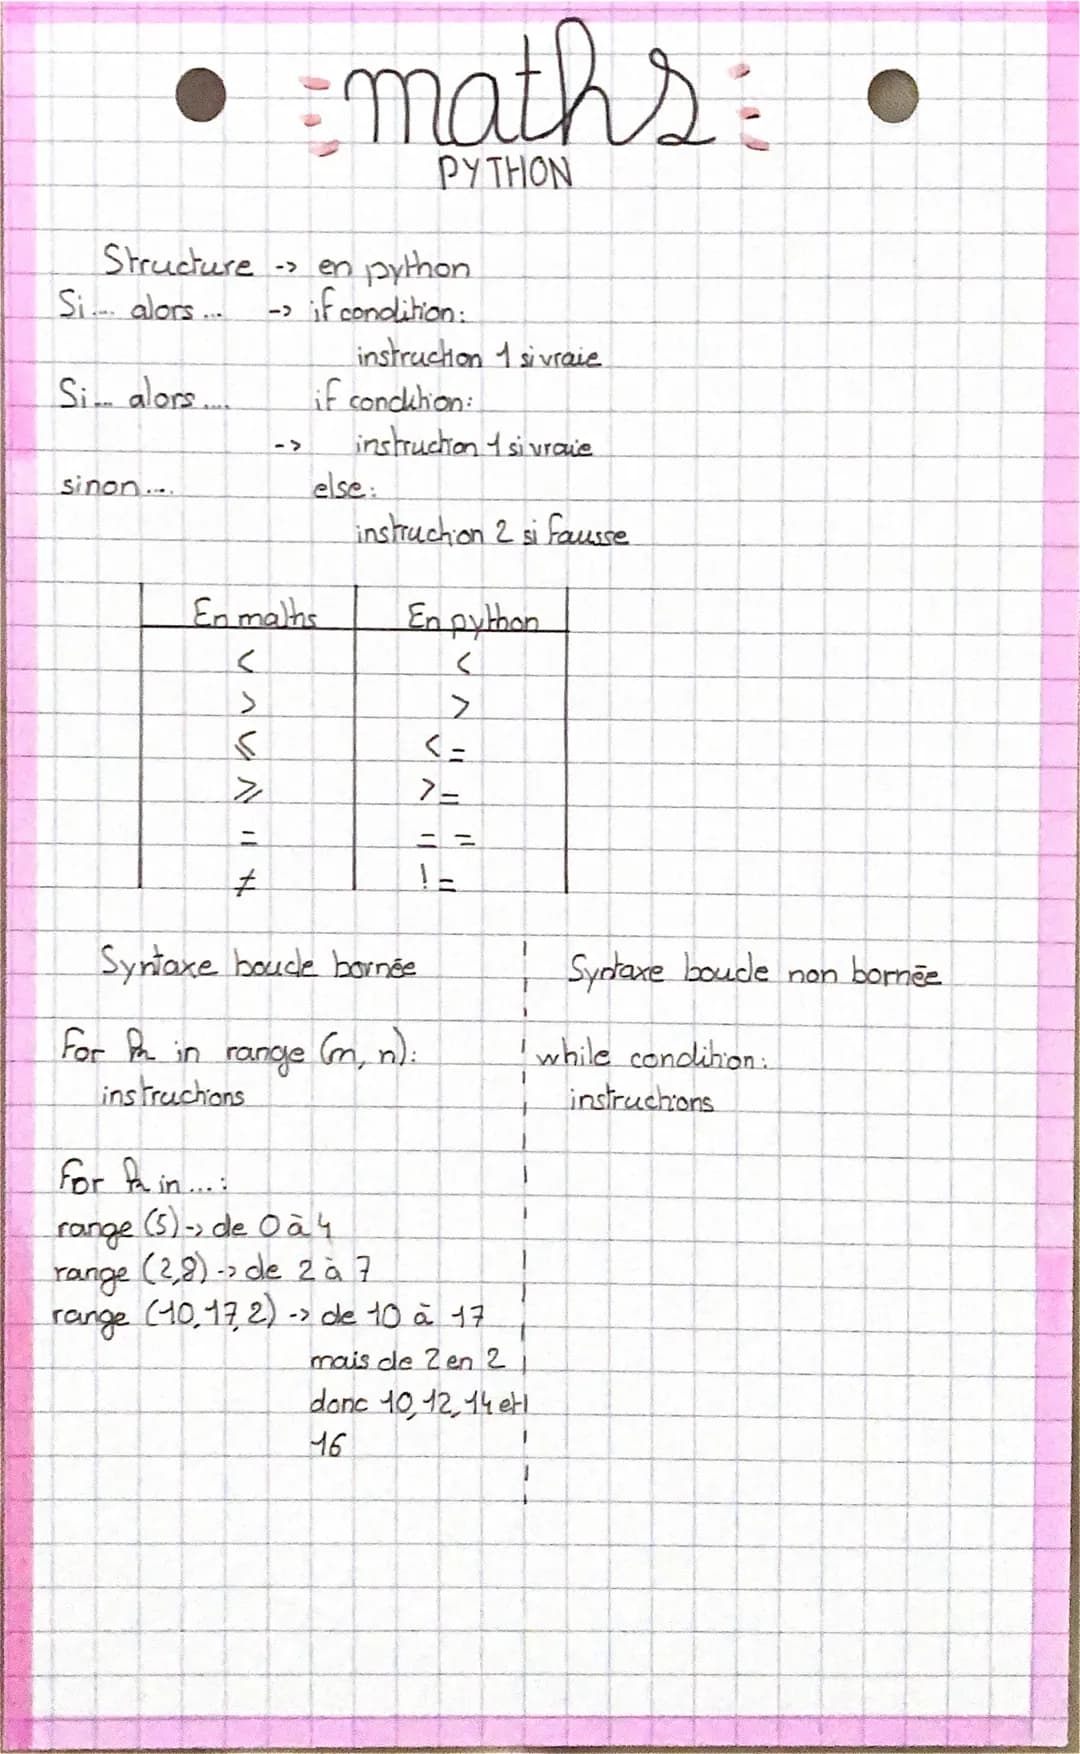 maths
PYTHON
Structure -> en python
Si... alors... -> if condition:
instruction 1 si vraie
Si... alors.... if condition:
-> instruction 1 si vraie
sinon.... else:
instruction 2 si fausse
En maths En python
< <
> >
⩽ <=
⩾ >=
= ==
≠ !=
Syntaxe boucle bornée
Syntaxe boucle non bornée
for k in range (m, n):
instructions
while condition:
instructions
for k in ...:
range (5) -> de 0 à 4
range (2,8) -> de 2 à 7
range (10,17,2) -> de 10 à 17
mais de 2 en 2
donc 10, 12, 14 et
16